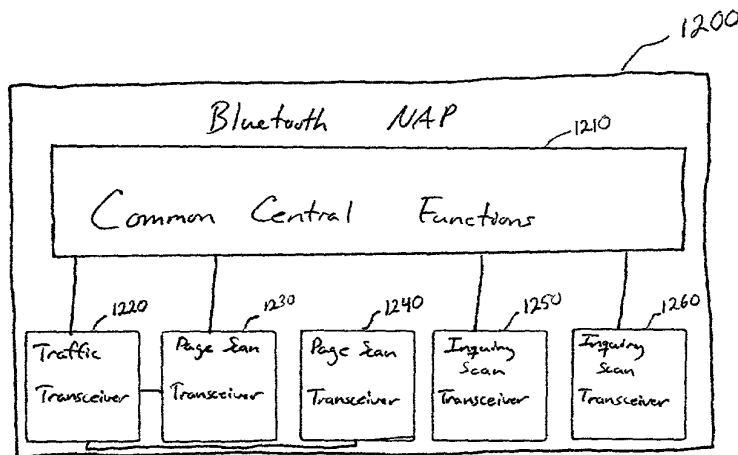 1200
Bluetooth NAP
1210
Common Central Functions
1220
1230
1240
1250
1260
Traffic
Transceiver
Page Scan
Transceiver
Page Scan
Transceiver
Inquiry
Scan
Transceiver
Inquiry
Scan
Transceiver